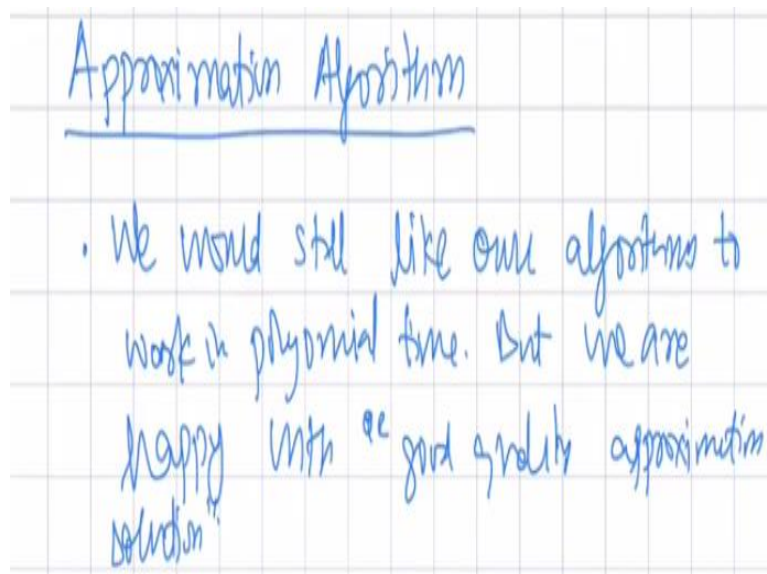 Approximation Algorithm
. We would still like our algorithms to
work in polyomial time. But we are
happy with "good quality approximation
solution".